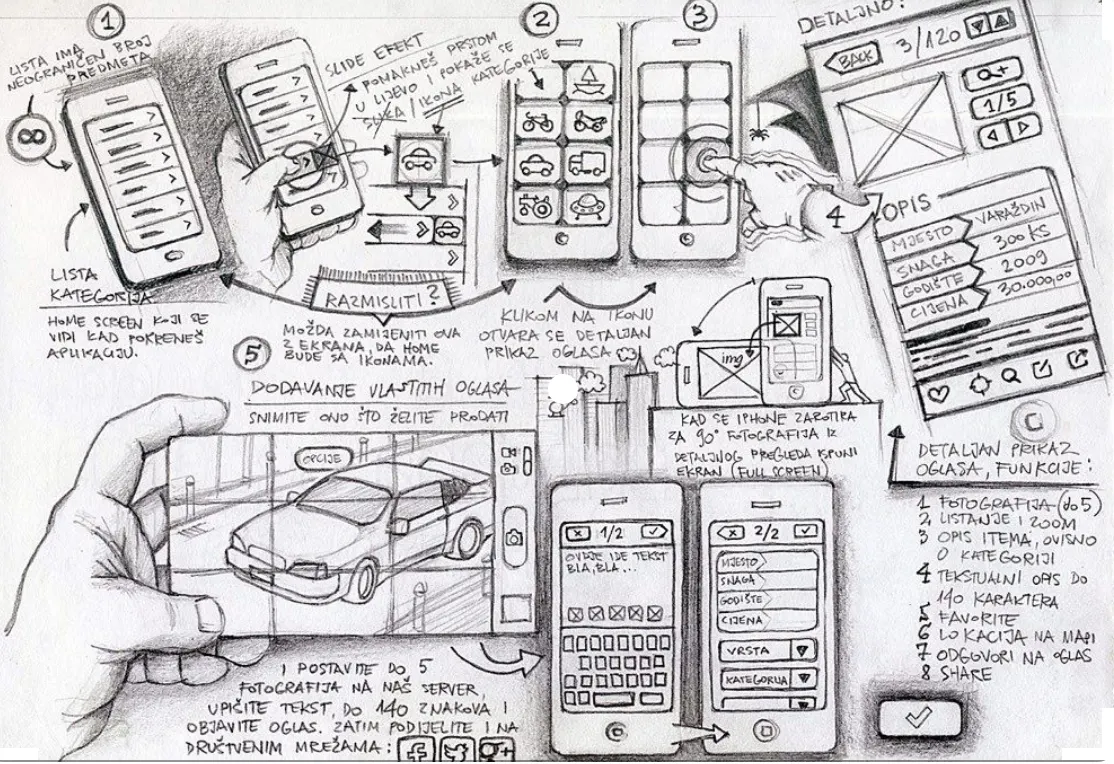 1
LISTA IMA
NEOGRANIČEN BROJ
PREDMETA
∞
LISTA
KATEGORIJA
HOME SCREEN KOJI SE
VIDI KAD POKRENEŠ
APLIKACIJU.
SLIDE EFEKT
POMAKNEŠ PRSTOM
U LIJEVO I POKAŽE SE
SLIKA / IKONA KATEGORIJE
RAZMISLITI?
MOŽDA ZAMIJENITI OVA
2 EKRANA, DA HOME
BUDE SA IKONAMA.
2
3
KLIKOM NA IKONU
OTVARA SE DETALJAN
PRIKAZ OGLASA
DETALJNO:
BACK 3/120
+
1/5
4
OPIS
MJESTO VARAŽDIN
SNAGA 300KS
GODIŠTE 2009
CIJENA 30.000,00
img
KAD SE IPHONE ZAROTIRA
ZA 90° FOTOGRAFIJA IZ
DETALJNOG PREGLEDA ISPUNI
EKRAN (FULL SCREEN)
DETALJAN PRIKAZ
OGLASA, FUNKCIJE:
1 FOTOGRAFIJA (do 5)
2 LISTANJE I ZOOM
3 OPIS ITEMA, OVISNO
O KATEGORIJI
4 TEKSTUALNI OPIS DO
140 KARAKTERA
5 FAVORITE
6 LOKACIJA NA MAPI
7 ODGOVORI NA OGLAS
8 SHARE
5
DODAVANJE VLASTITIH OGLASA
SNIMITE ONO ŠTO ŽELITE PRODATI
OPCIJE
I POSTAVITE DO 5
FOTOGRAFIJA NA NAŠ SERVER,
UPIŠITE TEKST, DO 140 ZNAKOVA I
OBJAVITE OGLAS. ZATIM PODIJELITE I NA
DRUŠTVENIM MREŽAMA: f g+
X 1/2
OVDJE IDE TEKST
BLA, BLA...
X 2/2
MJESTO
SNAGA
GODIŠTE
CIJENA
VRSTA
KATEGORIJA